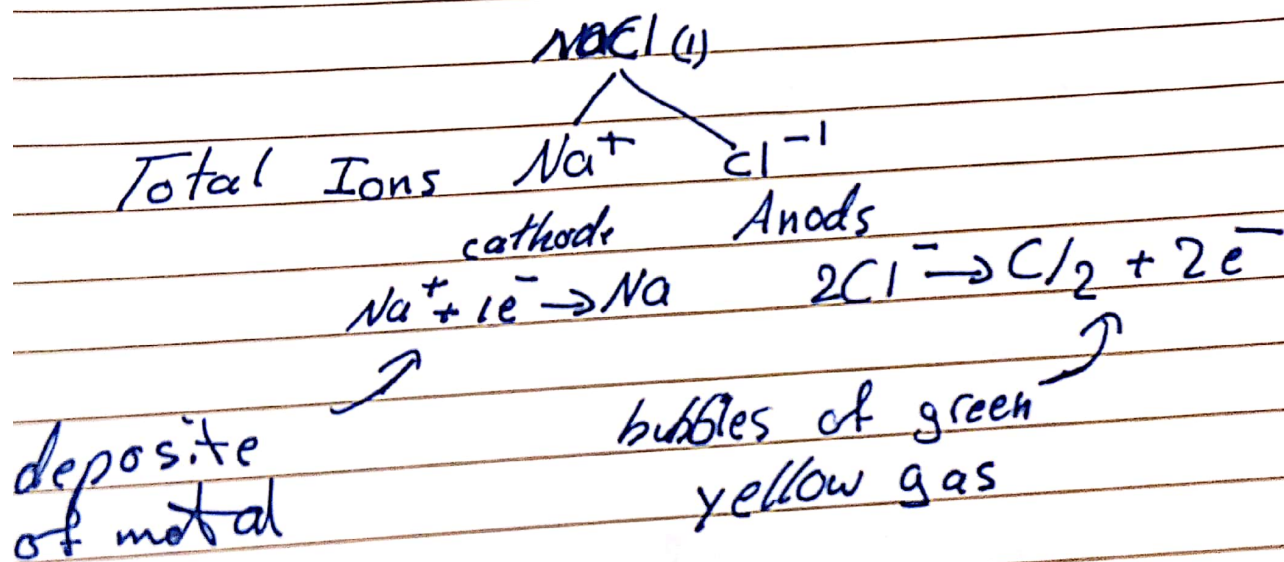 NaCl (l)
Total Ions Na⁺ Cl⁻¹
cathode Anods
Na⁺ + 1e⁻ → Na 2Cl⁻ → Cl₂ + 2e⁻
deposite bubbles of green
of metal yellow gas